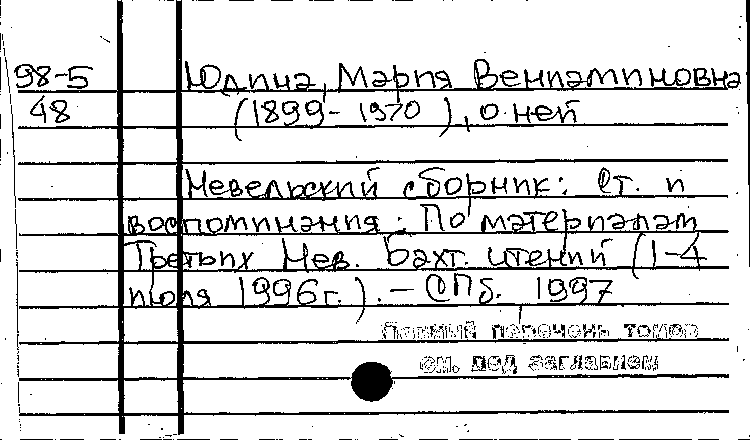 98-5 Юдина, Мария Вениаминовна
48 (1899-1970), о ней
Невельский сборник: Ст. и
воспоминания: По материалам
Третьих Нев. Бахт. чтений (1-4
июля 1996г.). - СПб. 1997
Полный перечень томов
см. под заглавием